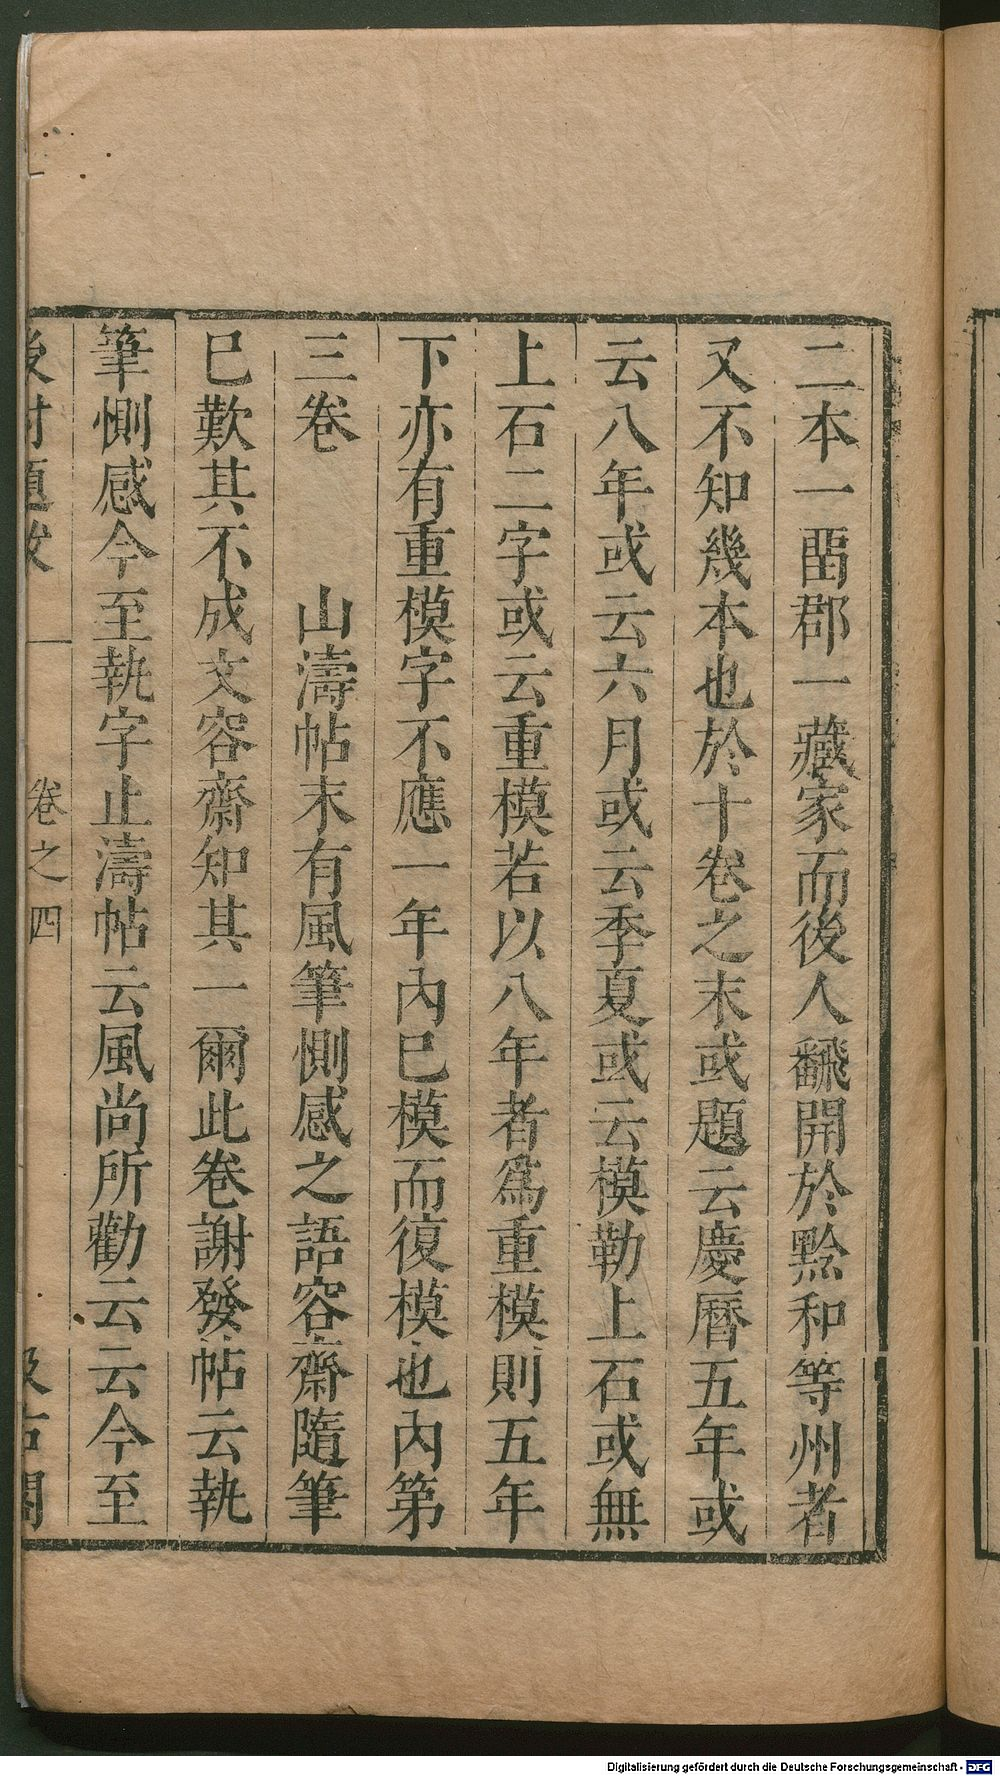 二本一畱郡一藏家而後人飜開於黔和等州者
又不知幾本也於十卷之末或題云慶曆五年或
云八年或云六月或云季夏或云模勒上石或無
上石二字或云重模若以八年者爲重模則五年
下亦有重模字不應一年內已模而復模也內第
三卷　　山濤帖末有風筆惻感之語容齋隨筆
已歎其不成文容齋知其一爾此卷謝發帖云執
筆惻感今至執字止濤帖云風尚所勸云云今至
後村題跋　卷之四　汲古閣
Digitalisierung gefördert durch die Deutsche Forschungsgemeinschaft - DFG